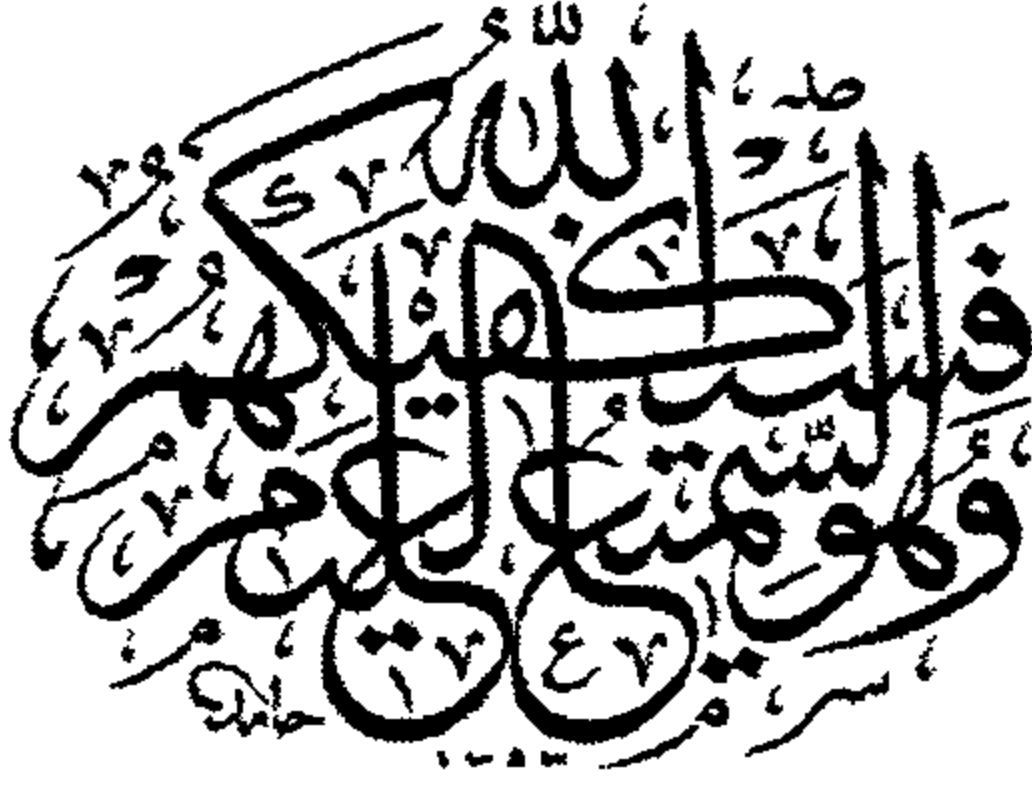 فَسَيَكْفِيكَهُمُ اللَّهُ
وَهُوَ السَّمِيعُ الْعَلِيمُ
حامد